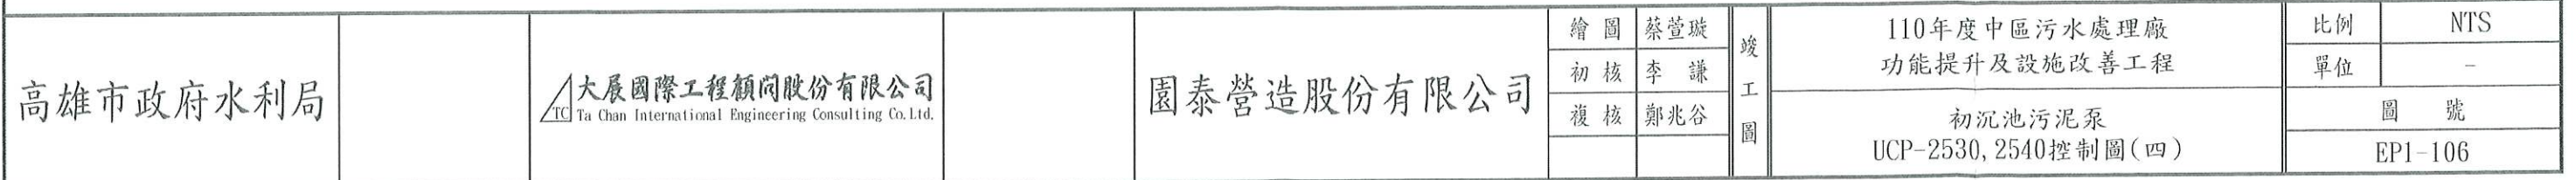 高雄市政府水利局
TC 大展國際工程顧問股份有限公司
Ta Chan International Engineering Consulting Co.Ltd.
園泰營造股份有限公司
繪圖 蔡萱璇
初核 李謙
複核 鄭兆谷
竣工圖
110年度中區污水處理廠
功能提升及設施改善工程
初沉池污泥泵
UCP-2530,2540控制圖(四)
比例 NTS
單位 -
圖號
EP1-106